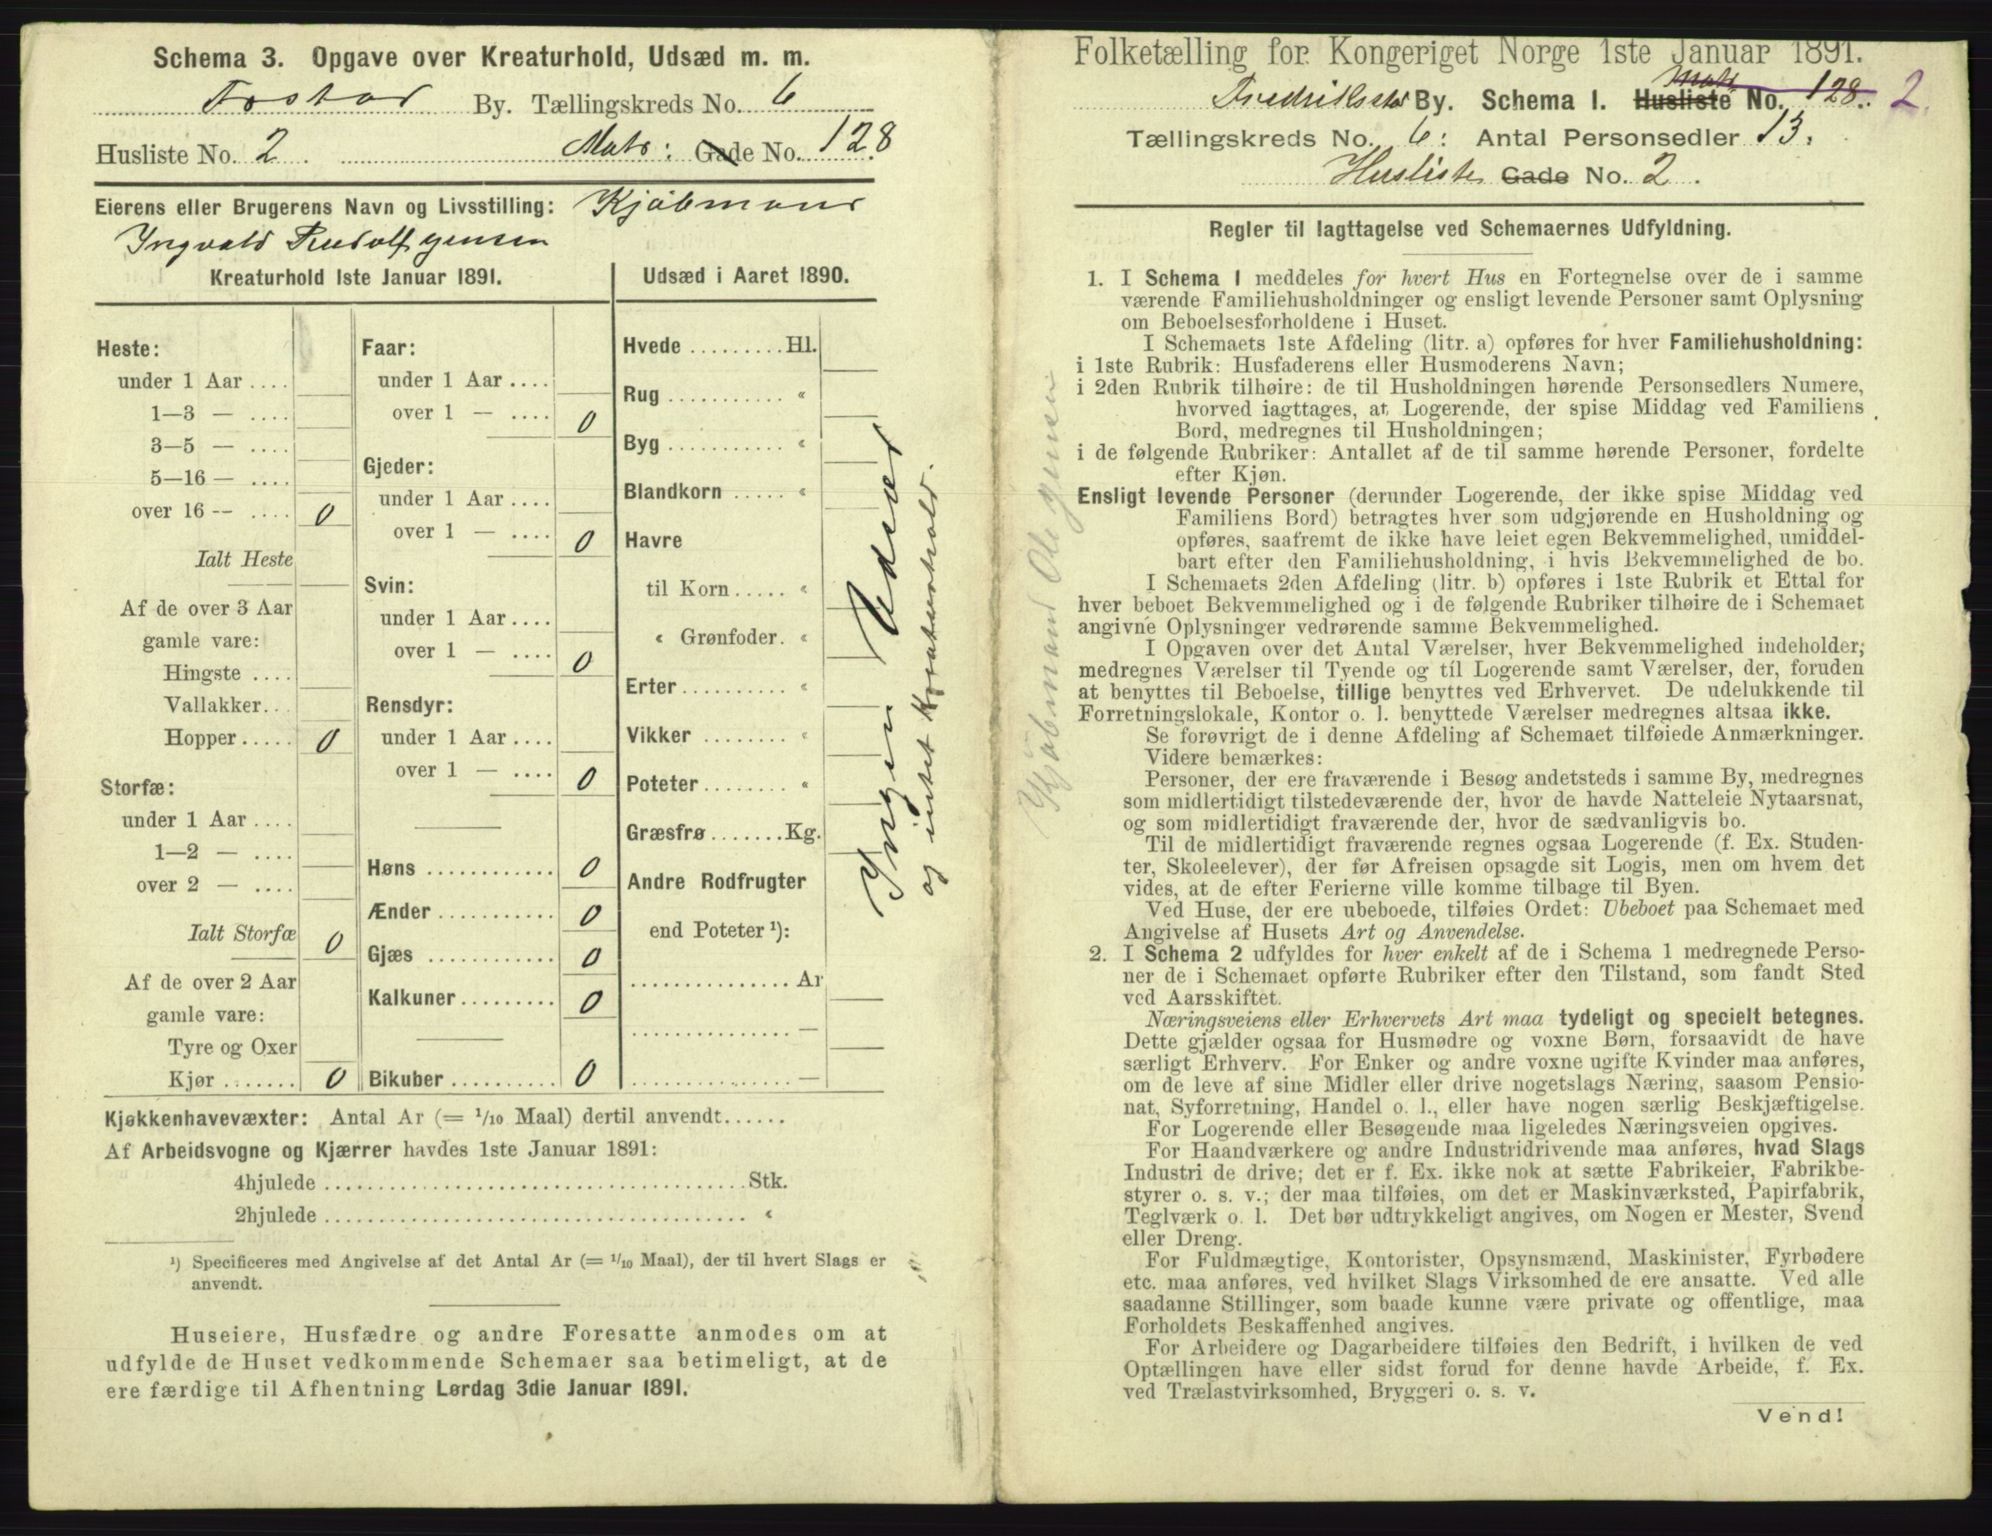 Schema 3. Opgave over Kreaturhold, Udsæd m. m.
By. Tællingskreds No. 6
Husliste No. 2 Matr: Gade No. 128
Eierens eller Brugerens Navn og Livsstilling: Kjøbmand
Ingvald Rudolf Jensen
Kreaturhold 1ste Januar 1891.
Heste:
under 1 Aar ....
1—3 — ....
3—5 — ....
5—16 — ....
over 16 -- .... 0
Ialt Heste
Af de over 3 Aar
gamle vare:
Hingste ....
Vallakker...
Hopper..... 0
Storfæ:
under 1 Aar ....
1—2 — ....
over 2 — ....
Ialt Storfæ 0
Af de over 2 Aar
gamle vare:
Tyre og Oxer
Kjør ....... 0
Faar:
under 1 Aar ....
over 1 — .... 0
Gjeder:
under 1 Aar ....
over 1 — .... 0
Svin:
under 1 Aar ....
over 1 — .... 0
Rensdyr:
under 1 Aar ....
over 1 — .... 0
Høns ............ 0
Ænder ........... 0
Gjæs ............ 0
Kalkuner ......... 0
Bikuber .......... 0
Udsæd i Aaret 1890.
Hvede ......... Hl.
Rug ........... «
Byg ........... «
Blandkorn ..... «
Havre
til Korn ..... «
« Grønfoder. «
Erter .......... «
Vikker ........ «
Poteter ........ «
Græsfrø ....... Kg.
Andre Rodfrugter
end Poteter ¹):
............... Ar
............... —
............... —
Ingen Udsæd
og intet Kreaturhold.
Kjøkkenhavevæxter: Antal Ar (= 1/10 Maal) dertil anvendt......
Af Arbeidsvogne og Kjærrer havdes 1ste Januar 1891:
4hjulede ........................................ Stk.
2hjulede ........................................ «
¹) Specificeres med Angivelse af det Antal Ar (= 1/10 Maal), der til hvert Slags er
anvendt.
Huseiere, Husfædre og andre Foresatte anmodes om at
udfylde de Huset vedkommende Schemaer saa betimeligt, at de
ere færdige til Afhentning Lørdag 3die Januar 1891.
Kjøbmand Ole Jensen
Folketælling for Kongeriget Norge 1ste Januar 1891.
Matr
Fredrikstad By. Schema 1. Husliste No. 128. 2.
Tællingskreds No. 6: Antal Personsedler 13.
Husliste Gade No. 2.
Regler til Iagttagelse ved Schemaernes Udfyldning.
1. I Schema 1 meddeles for hvert Hus en Fortegnelse over de i samme
værende Familiehusholdninger og ensligt levende Personer samt Oplysning
om Beboelsesforholdene i Huset.
I Schemaets 1ste Afdeling (litr. a) opføres for hver Familiehusholdning:
i 1ste Rubrik: Husfaderens eller Husmoderens Navn;
i 2den Rubrik tilhøire: de til Husholdningen hørende Personsedlers Numere,
hvorved iagttages, at Logerende, der spise Middag ved Familiens
Bord, medregnes til Husholdningen;
i de følgende Rubriker: Antallet af de til samme hørende Personer, fordelte
efter Kjøn.
Ensligt levende Personer (derunder Logerende, der ikke spise Middag ved
Familiens Bord) betragtes hver som udgjørende en Husholdning og
opføres, saafremt de ikke have leiet egen Bekvemmelighed, umiddel-
bart efter den Familiehusholdning, i hvis Bekvemmelighed de bo.
I Schemaets 2den Afdeling (litr. b) opføres i 1ste Rubrik et Ettal for
hver beboet Bekvemmelighed og i de følgende Rubriker tilhøire de i Schemaet
angivne Oplysninger vedrørende samme Bekvemmelighed.
I Opgaven over det Antal Værelser, hver Bekvemmelighed indeholder,
medregnes Værelser til Tyende og til Logerende samt Værelser, der, foruden
at benyttes til Beboelse, tillige benyttes ved Erhvervet. De udelukkende til
Forretningslokale, Kontor o. l. benyttede Værelser medregnes altsaa ikke.
Se forøvrigt de i denne Afdeling af Schemaet tilføiede Anmærkninger.
Videre bemærkes:
Personer, der ere fraværende i Besøg andetsteds i samme By, medregnes
som midlertidigt tilstedeværende der, hvor de havde Natteleie Nytaarsnat,
og som midlertidigt fraværende der, hvor de sædvanligvis bo.
Til de midlertidigt fraværende regnes ogsaa Logerende (f. Ex. Studen-
ter, Skoleelever), der før Afreisen opsagde sit Logis, men om hvem det
vides, at de efter Ferierne ville komme tilbage til Byen.
Ved Huse, der ere ubeboede, tilføies Ordet: Ubeboet paa Schemaet med
Angivelse af Husets Art og Anvendelse.
2. I Schema 2 udfyldes for hver enkelt af de i Schema 1 medregnede Perso-
ner de i Schemaet opførte Rubriker efter den Tilstand, som fandt Sted
ved Aarsskiftet.
Næringsveiens eller Erhvervets Art maa tydeligt og specielt betegnes.
Dette gjælder ogsaa for Husmødre og voxne Børn, forsaavidt de have
særligt Erhverv. For Enker og andre voxne ugifte Kvinder maa anføres,
om de leve af sine Midler eller drive nogetslags Næring, saasom Pensio-
nat, Syforretning, Handel o. l., eller have nogen særlig Beskjæftigelse.
For Logerende eller Besøgende maa ligeledes Næringsveien opgives.
For Haandværkere og andre Industridrivende maa anføres, hvad Slags
Industri de drive; det er f. Ex. ikke nok at sætte Fabrikeier, Fabrikbe-
styrer o. s. v.; der maa tilføies, om det er Maskinværksted, Papirfabrik,
Teglværk o. l. Det bør udtrykkeligt angives, om Nogen er Mester, Svend
eller Dreng.
For Fuldmægtige, Kontorister, Opsynsmænd, Maskinister, Fyrbødere
etc. maa anføres, ved hvilket Slags Virksomhed de ere ansatte. Ved alle
saadanne Stillinger, som baade kunne være private og offentlige, maa
Forholdets Beskaffenhed angives.
For Arbeidere og Dagarbeidere tilføies den Bedrift, i hvilken de ved
Optællingen have eller sidst forud for denne havde Arbeide, f. Ex.
ved Trælastvirksomhed, Bryggeri o. s. v.
Vend!